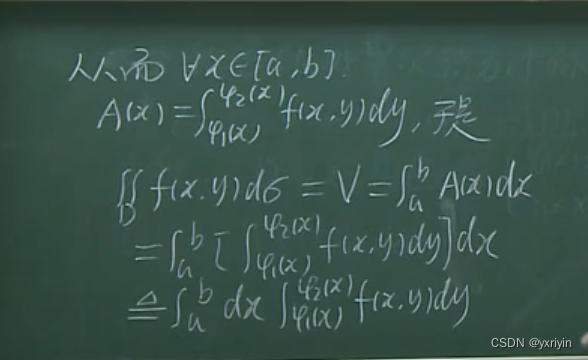 从而 ∀x∈[a,b].
A(x)=∫_{φ₁(x)}^{φ₂(x)} f(x,y)dy, 于是
∬_D f(x,y)dσ = V = ∫_a^b A(x)dx
= ∫_a^b [∫_{φ₁(x)}^{φ₂(x)} f(x,y)dy]dx
≜ ∫_a^b dx ∫_{φ₁(x)}^{φ₂(x)} f(x,y)dy
CSDN @yxriyin